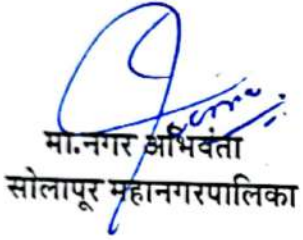 मा.नगर अभियंता
सोलापूर महानगरपालिका